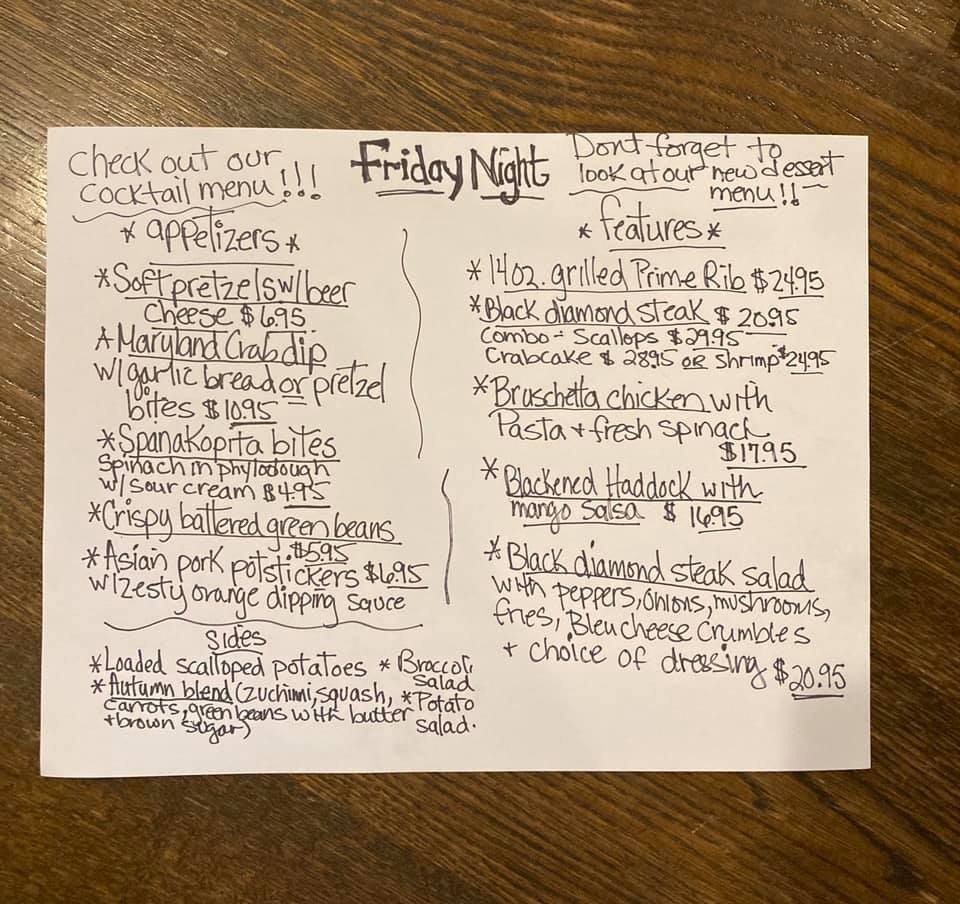 Check out our
cocktail menu!!!
Friday Night
Dont forget to
look at our new dessert
menu!!
* appetizers *
* Soft pretzels w/ beer
Cheese $6.95
* Maryland Crab dip
w/ garlic bread or pretzel
bites $10.95
* Spanakopita bites
Spinach in phylodough
w/ sour cream $4.95
* Crispy battered green beans
$5.95
* Asian pork potstickers $6.95
w/ zesty orange dipping sauce
Sides
* Loaded scalloped potatoes
* Autumn blend (zuchinni, squash,
carrots, green beans with butter
+ brown sugar)
* Broccoli
salad
* Potato
salad.
* features *
* 14oz. grilled Prime Rib $24.95
* Black diamond steak $20.95
Combo - Scallops $29.95
Crabcake $28.95 or Shrimp $24.95
* Bruschetta chicken with
Pasta + fresh spinach
$17.95
* Blackened Haddock with
mango Salsa $16.95
* Black diamond steak salad
with peppers, onions, mushrooms,
fries, Bleu cheese crumbles
+ choice of dressing $20.95